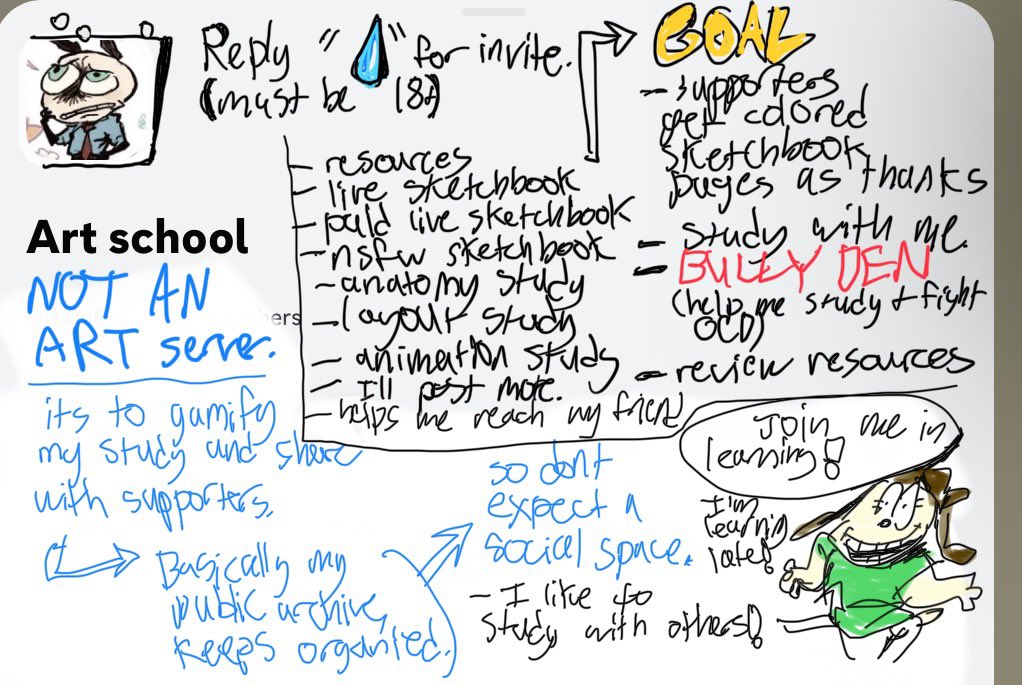 Reply "💧" for invite.
(must be 18+)
Art school
NOT AN
ART server.
its to gamify
my study and share
with supporters.
Basically my
public archive,
keeps organized.
so dont
expect a
social space.
- I like to
study with others!
- resources
- live sketchbook
- paid live sketchbook
- nsfw sketchbook
- anatomy study
- layout study
- animation study
- I'll post more.
- helps me reach my friend
hers
GOAL
- supporters
get colored
sketchbook
pages as thanks
- study with me.
- BULLY DEN
(help me study + fight
OCD)
- review resources
Join me in
learning!
I'm
learning
late!